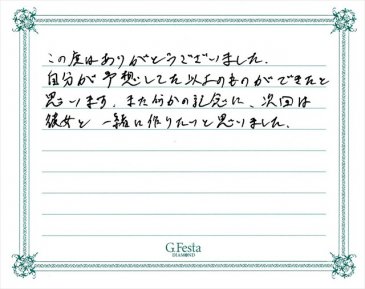 この度はありがとうございました.
自分が予想してた以上のものができたと
思います. また何かの記念に、次回は
彼女と一緒に作りたいと思いました.
G.Festa
DIAMOND